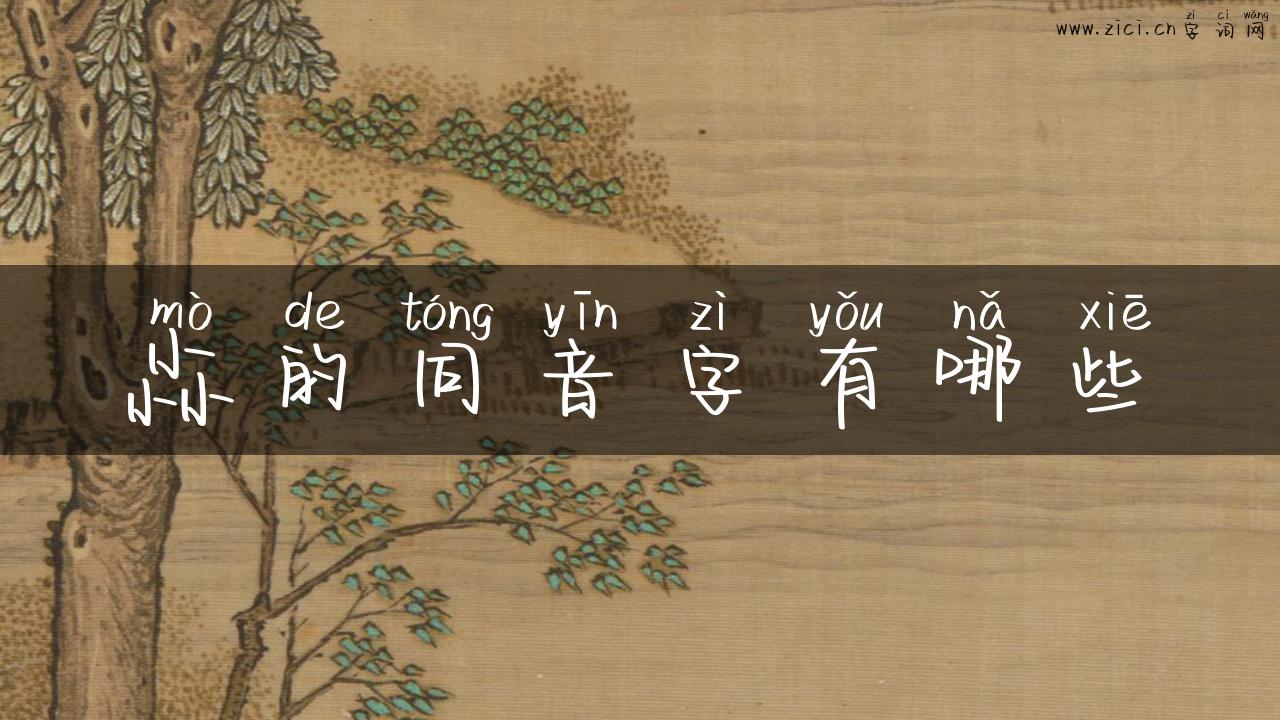 zì cí wǎng
www.zici.cn 字词网
mò de tóng yīn zì yǒu nǎ xiē
尛的同音字有哪些